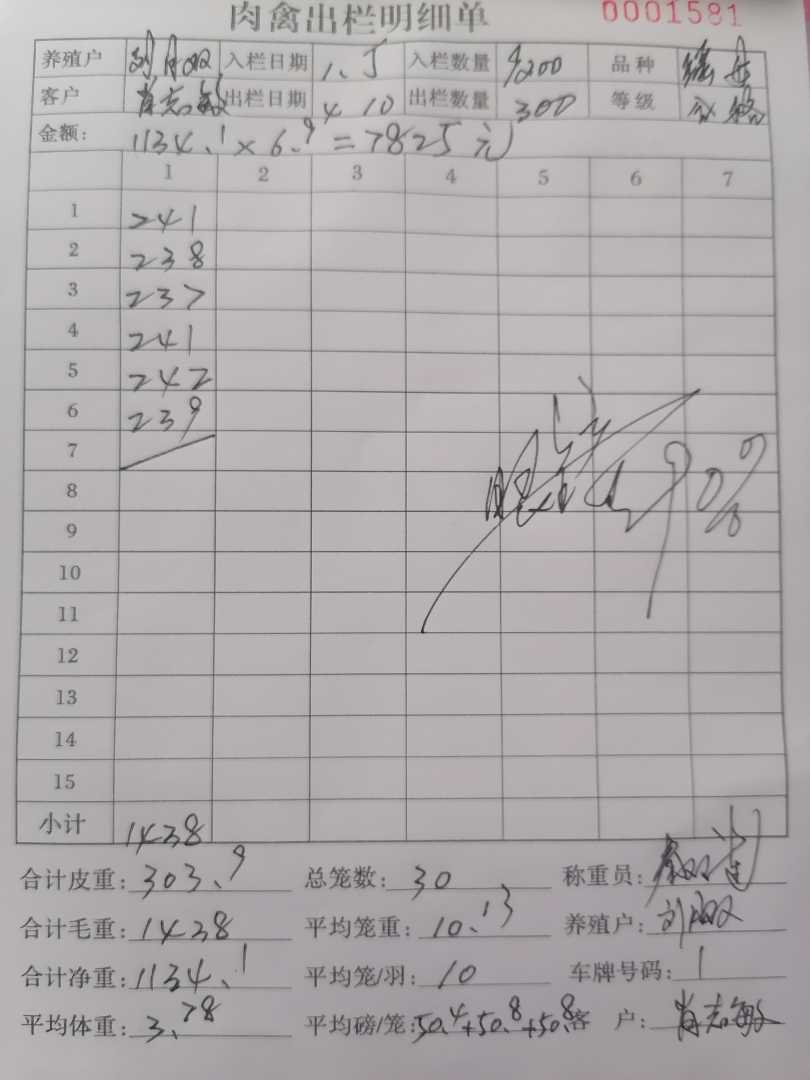 肉禽出栏明细单 0001581
养殖户 入栏日期 1.5 入栏数量 9200 品种
客户 肖志敏 出栏日期 4 10 出栏数量 300 等级
金额: 1134.1×6.9=7825元
1 2 3 4 5 6 7
1 241
2 238
3 237
4 241
5 242
6 239
7
8
9
10
11
12
13
14
15
小计 1438
合计皮重: 303.9 总笼数: 30 称重员:
合计毛重: 1438 平均笼重: 10.13 养殖户:
合计净重: 1134.1 平均笼/羽: 10 车牌号码: 1
平均体重: 3.78 平均磅/笼: 50.4+50.8+50.8 客户: 肖志敏